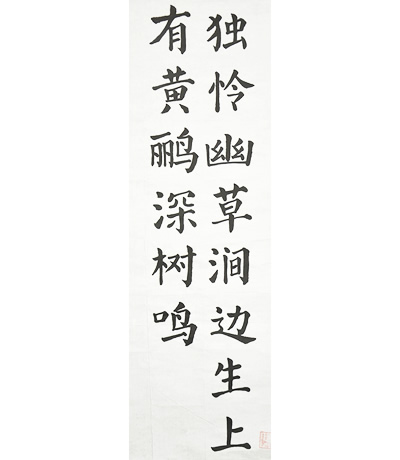 独怜幽草涧边生上
有黄鹂深树鸣